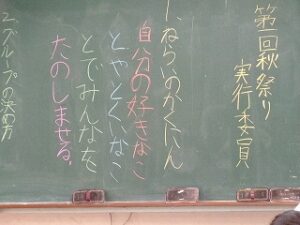 第二回秋祭り
実行委員
1.ねらいのかくにん
自分の好きなこ
とやとくいなこ
とでみんなを
たのしませる。
2.グループの決め方